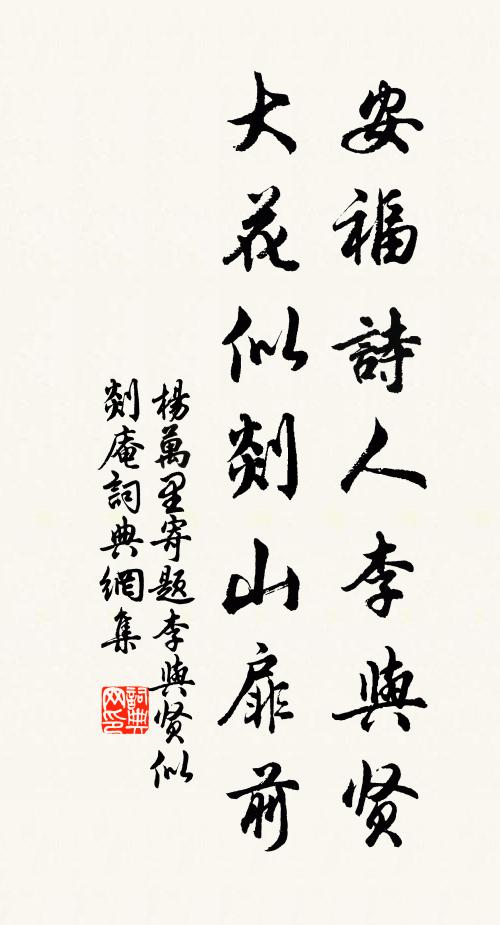 安福詩人李與贤
大花似剡山扉前
楊萬里寄題李與贤似
剡庵詞典網集
詞典网印